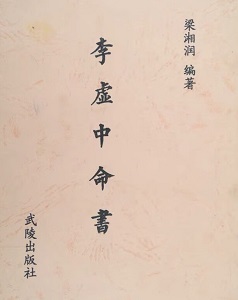 梁湘润 编著
李虚中命書
武陵出版社